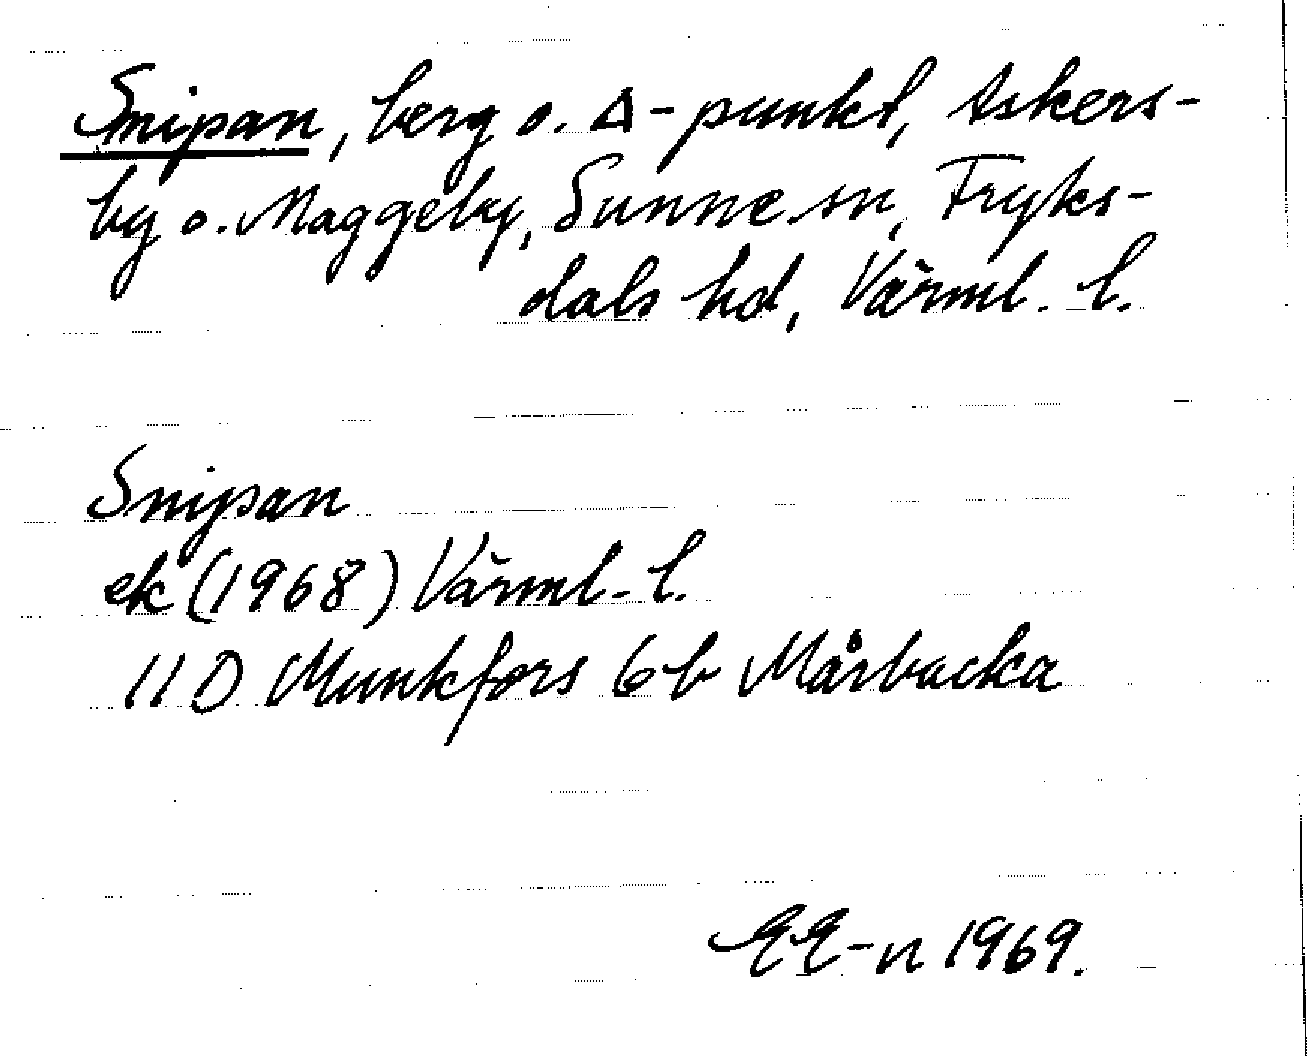 Snipan, berg o. Δ-punkt, Askers-
by o. Maggeby, Sunne sn, Fryks-
dals hd, Värml. l.
Snipan
ek (1968) Värml. l.
11 D Munkfors 6b Mårbacka
EE-n 1969.